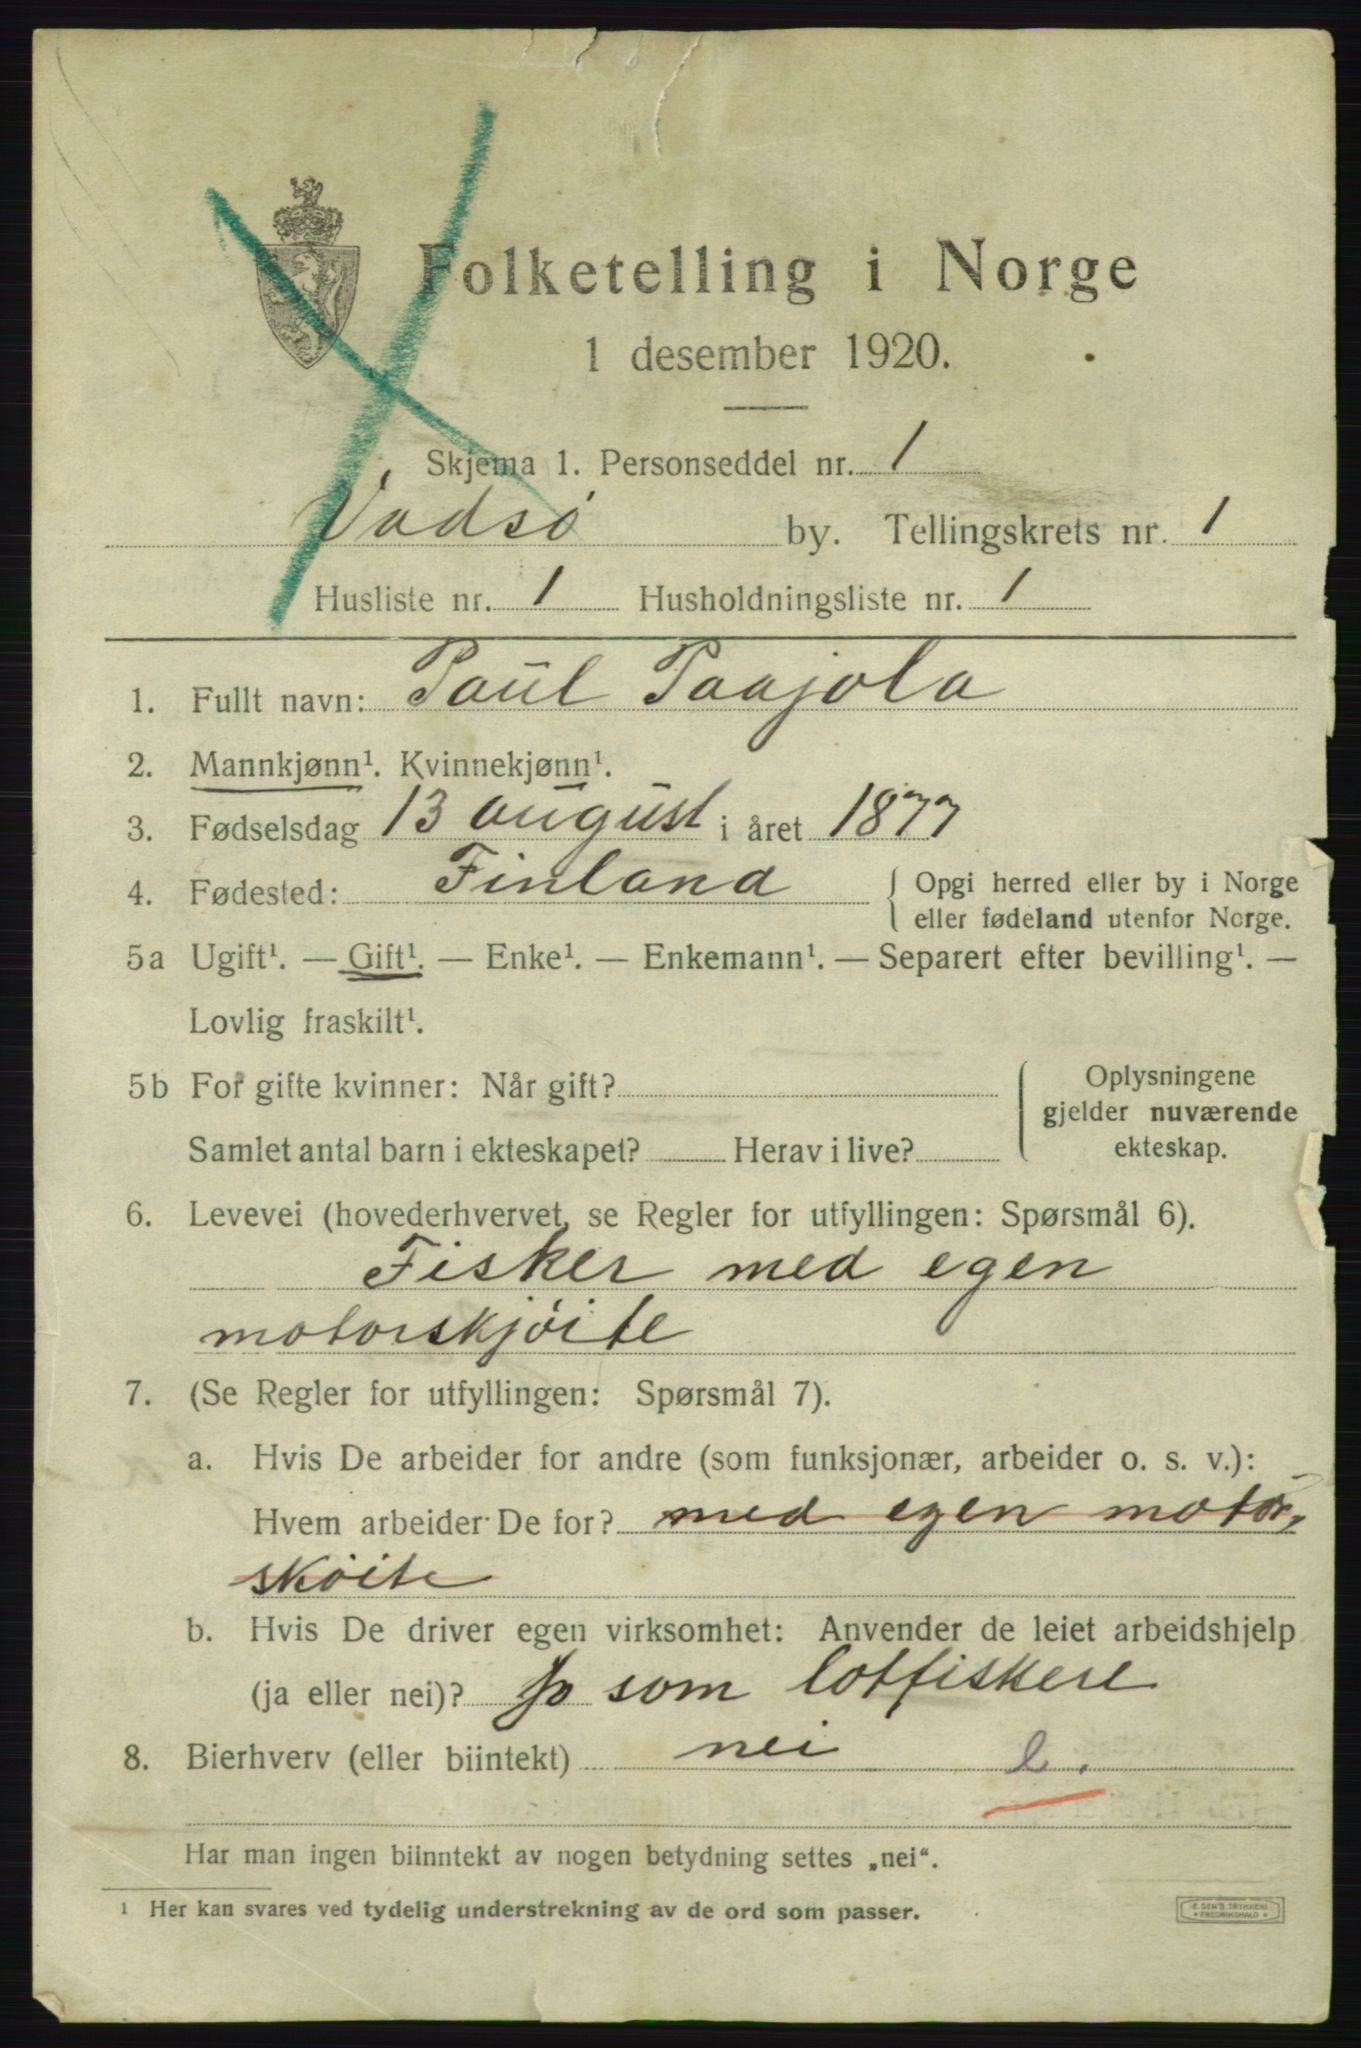 Folketelling i Norge
1 desember 1920.
Skjema 1. Personseddel nr. 1
Vadsø by. Tellingskrets nr. 1
Husliste nr. 1 Husholdningsliste nr. 1
1. Fullt navn: Paul Paajola
2. Mannkjønn¹. Kvinnekjønn¹.
3. Fødselsdag 13 august i året 1877
4. Fødested: Finland { Opgi herred eller by i Norge
eller fødeland utenfor Norge.
5a Ugift¹. — Gift¹. — Enke¹. — Enkemann¹. — Separert efter bevilling¹. —
Lovlig fraskilt¹.
5b For gifte kvinner: Når gift?
Samlet antal barn i ekteskapet? Herav i live?
Oplysningene
gjelder nuværende
ekteskap.
6. Levevei (hovederhvervet, se Regler for utfyllingen: Spørsmål 6).
Fisker med egen
motorskjöite
7. (Se Regler for utfyllingen: Spørsmål 7).
a. Hvis De arbeider for andre (som funksjonær, arbeider o. s. v.):
Hvem arbeider De for? med egen motor,
sköite
b. Hvis De driver egen virksomhet: Anvender de leiet arbeidshjelp
(ja eller nei)? Jo som lotfiskere
8. Bierhverv (eller biintekt) nei
Har man ingen biinntekt av nogen betydning settes „nei“.
¹ Her kan svares ved tydelig understrekning av de ord som passer.
E. SEM'S TRYKKERI
FREDRIKSHALD